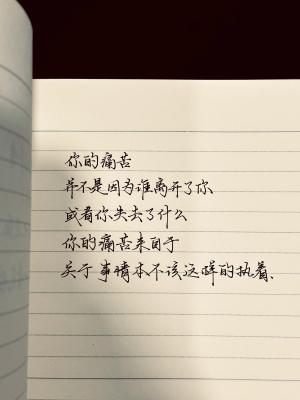 你的痛苦
并不是因为谁离开了你
或者你失去了什么
你的痛苦来自于
关于事情本不该这样的执着.